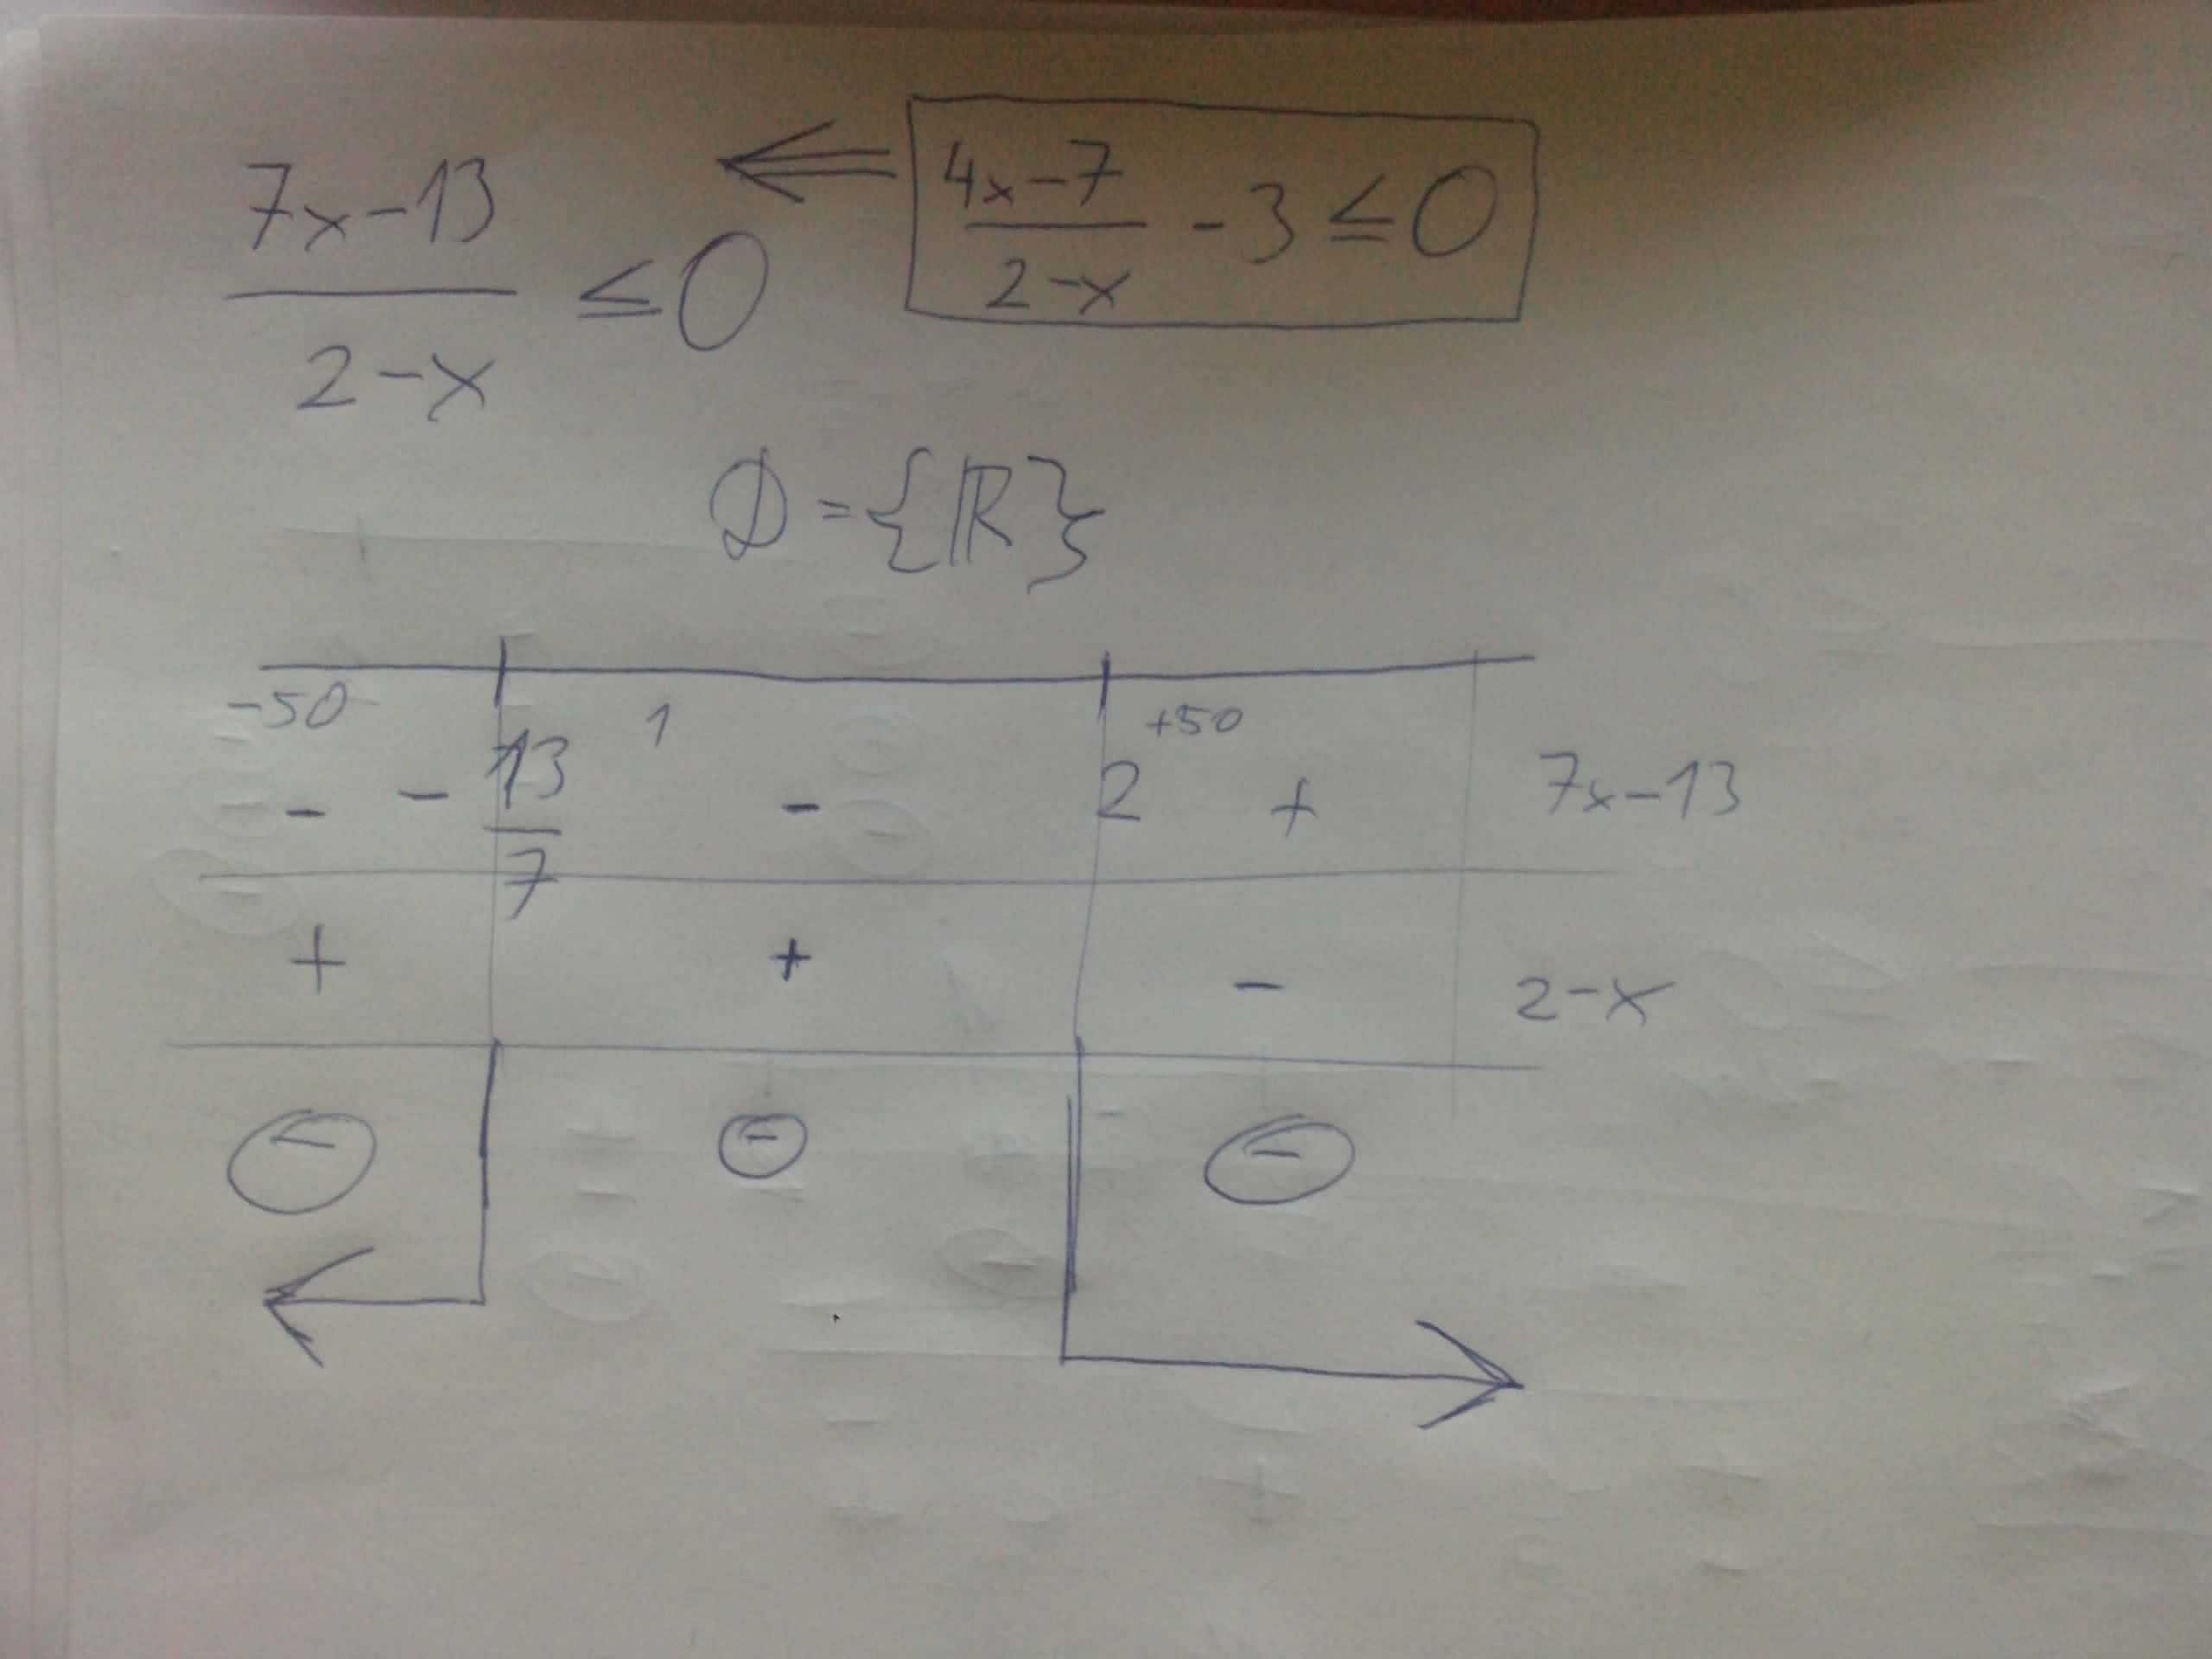 7x-13 / 2-x ≤ 0 ⇐ 4x-7 / 2-x - 3 ≤ 0
D = {ℝ}
-50 1 +50
- - 13/7 - 2 + 7x-13
+ + - 2-x
- - -